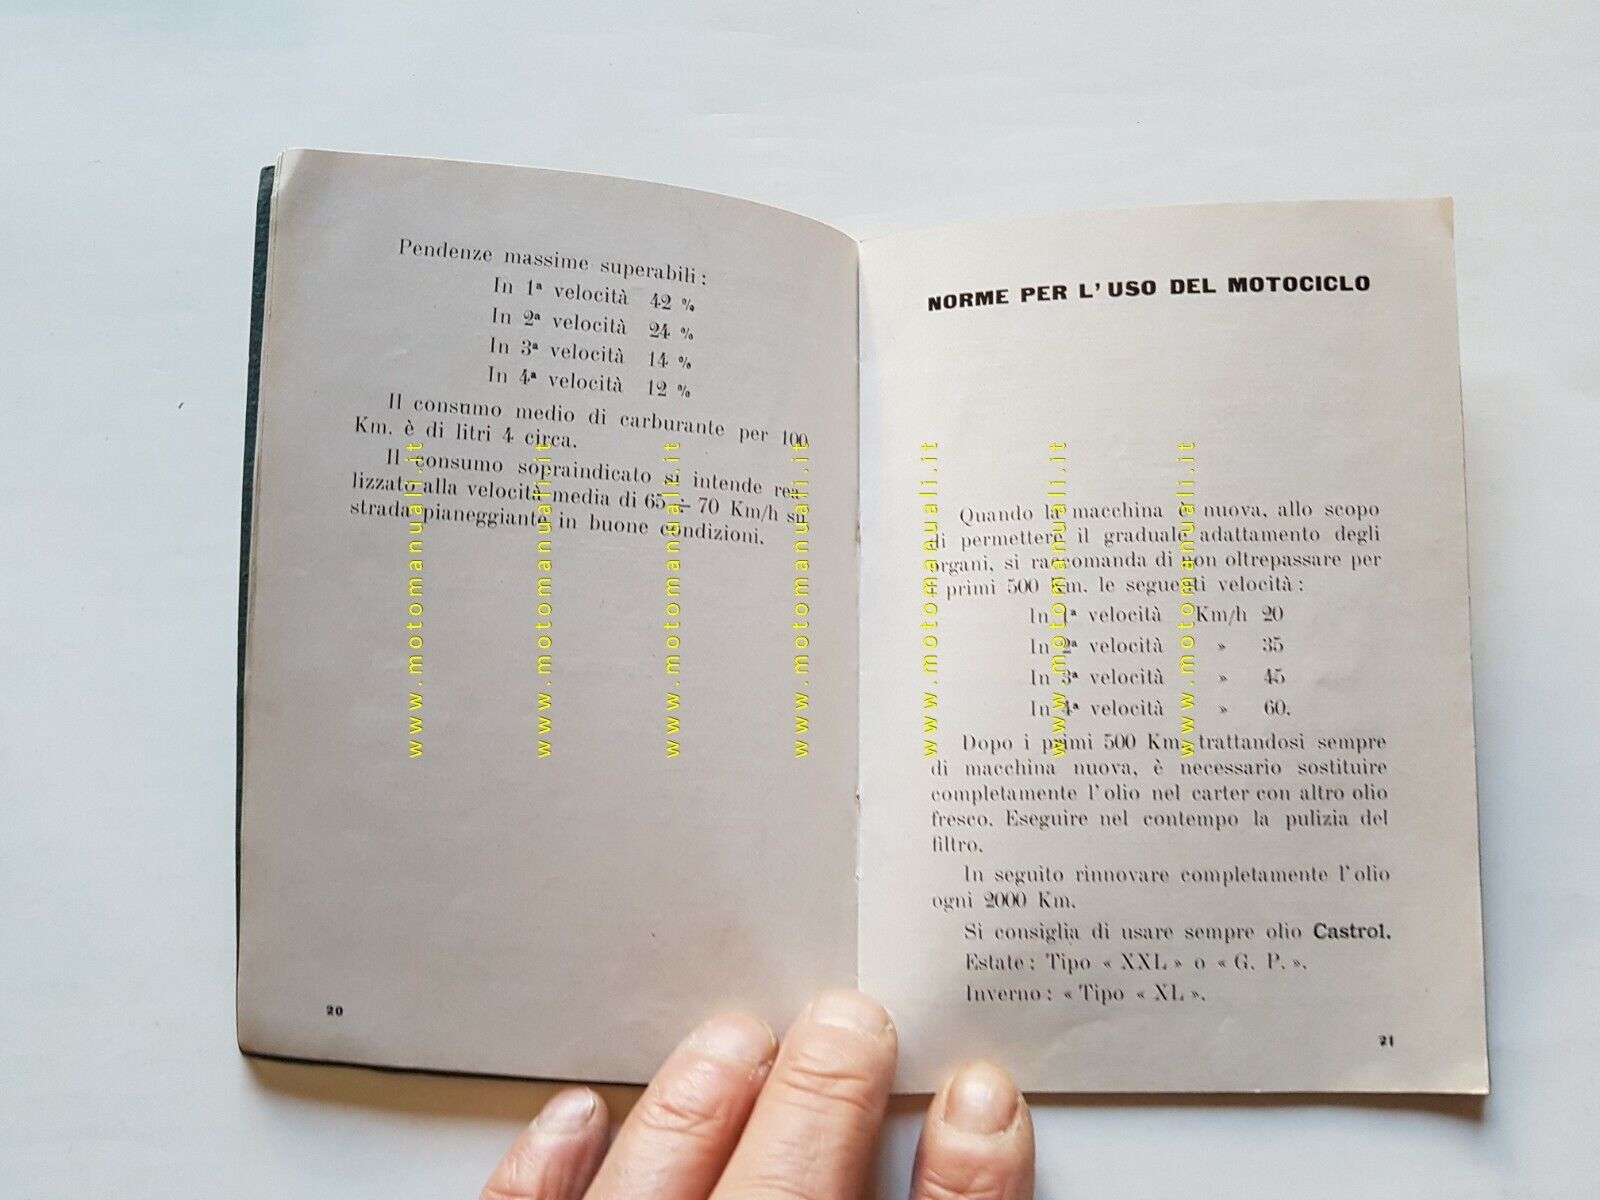 Pendenze massime superabili :
In 1ª velocità 42 %
In 2ª velocità 24 %
In 3ª velocità 14 %
In 4ª velocità 12 %
Il consumo medio di carburante per 100
Km. è di litri 4 circa.
Il consumo sopraindicato si intende rea-
lizzato alla velocità media di 65 ÷ 70 Km/h su
strada pianeggiante in buone condizioni.
20
NORME PER L' USO DEL MOTOCICLO
Quando la macchina è nuova, allo scopo
di permettere il graduale adattamento degli
organi, si raccomanda di non oltrepassare per
i primi 500 Km. le seguenti velocità :
In 1ª velocità Km/h 20
In 2ª velocità » 35
In 3ª velocità » 45
In 4ª velocità » 60.
Dopo i primi 500 Km. trattandosi sempre
di macchina nuova, è necessario sostituire
completamente l'olio nel carter con altro olio
fresco. Eseguire nel contempo la pulizia del
filtro.
In seguito rinnovare completamente l'olio
ogni 2000 Km.
Si consiglia di usare sempre olio Castrol.
Estate : Tipo « XXL » o « G. P. ».
Inverno : « Tipo « XL ».
21
www.motomanuali.it
www.motomanuali.it
www.motomanuali.it
www.motomanuali.it
www.motomanuali.it
www.motomanuali.it
www.motomanuali.it